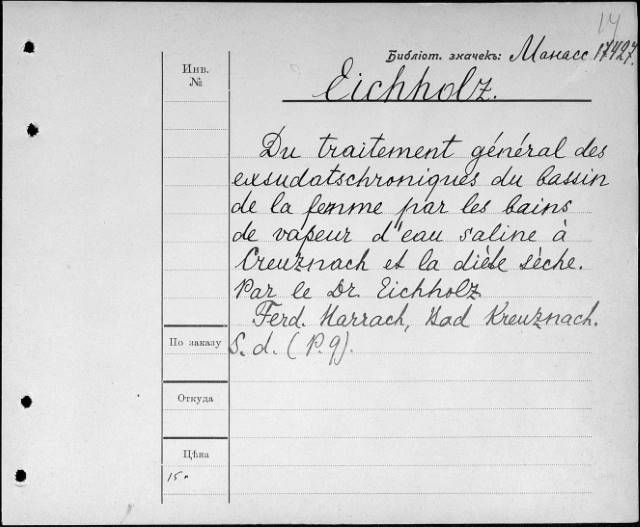 14
Библіот. значекъ: Манасс 17427.
Инв.
№
Eichholz.
Du traitement général des
exsudatschroniques du bassin
de la femme par les bains
de vapeur d'eau saline à
Creuznach et la diète sèche.
Par le Dr. Eichholz
Ferd. Harrach, Bad Kreuznach.
По заказу
S. d. (P. 9).
Откуда
Цѣна
15